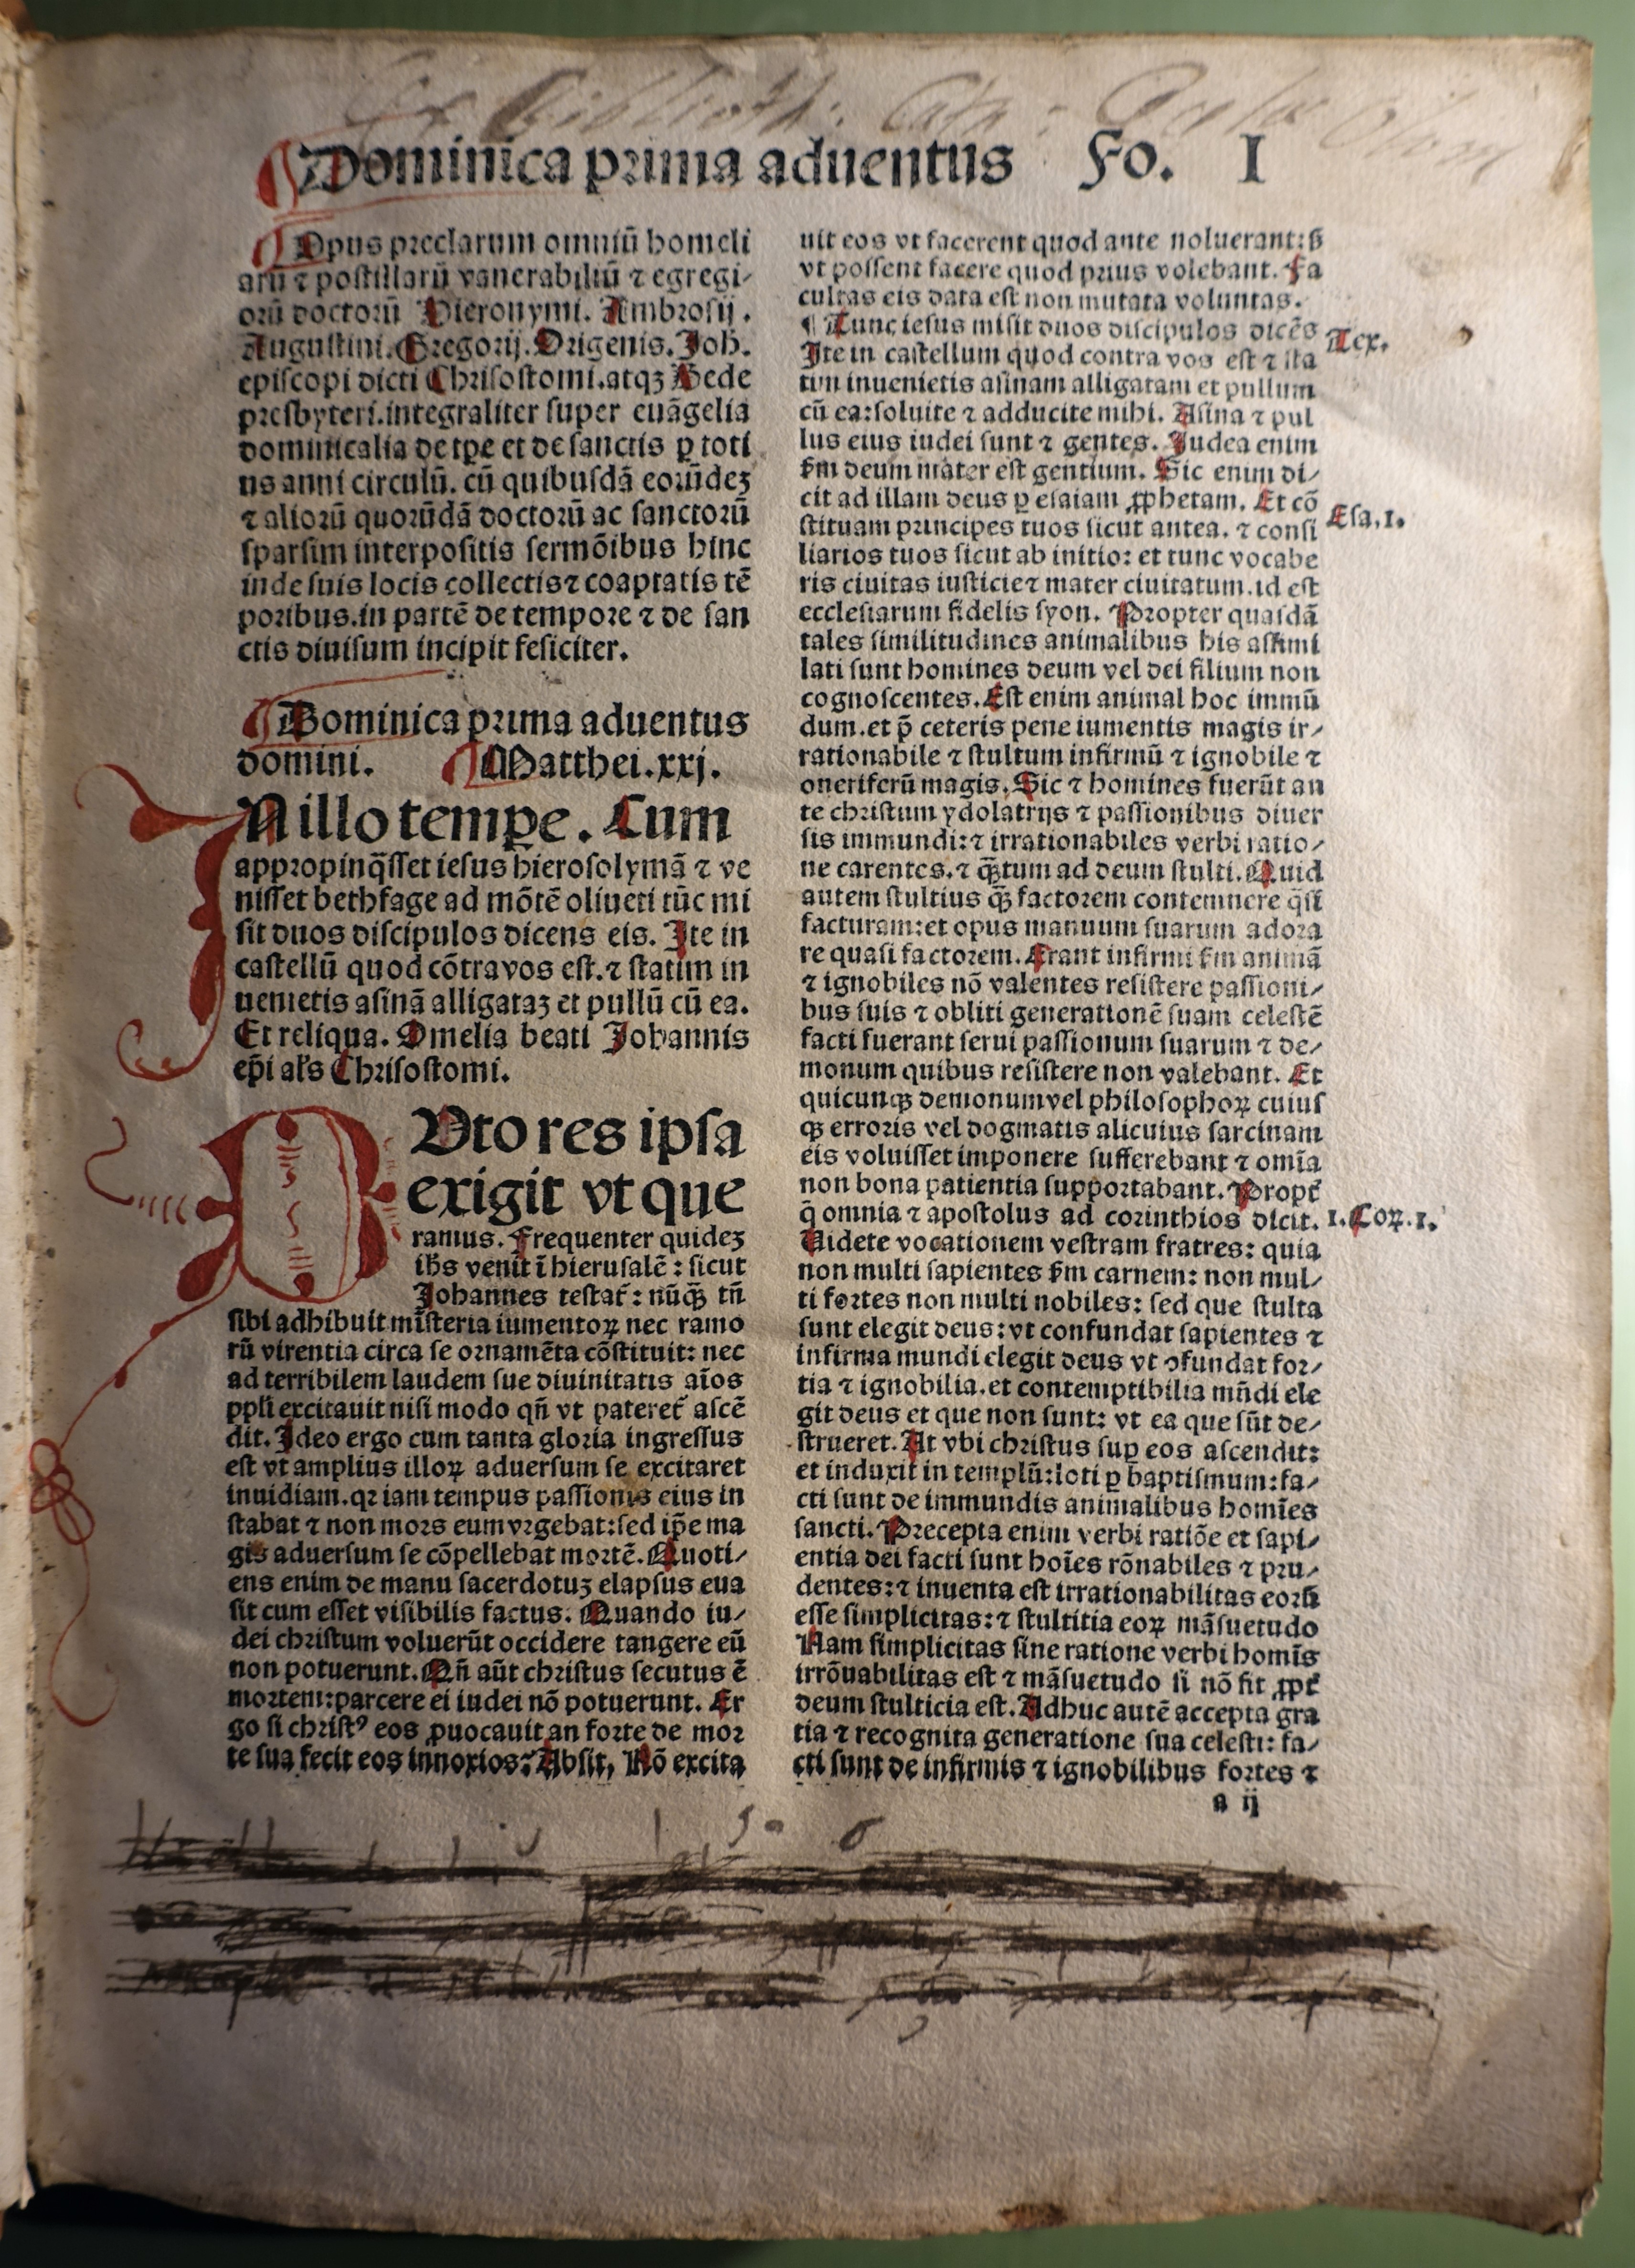 Ex Biblioth:
Dominica prima aduentus Fo. I
Opus preclarum omniū homeli
arū ⁊ postillarū vanerabiliū ⁊ egregi⸗
orū doctorū Hieronymi. Ambrosij.
Augustini. Gregorij. Origenis. Joh̄.
episcopi dicti Chrisostomi. atqꝫ Bede
presbyteri. integraliter super euāgelia
dominicalia de tp̄e et de sanctis ꝑ toti
us anni circulū. cū quibusdā eorūdeꝫ
⁊ aliorū quorūdā doctorū ac sanctorū
sparsim interpositis sermōibus hinc
inde suis locis collectis ⁊ coaptatis tē
poribus. in partē de tempore ⁊ de san
ctis diuisum incipit feliciter.
Dominica prima aduentus
domini. Matthei. xxj.
IN illo tempꝑe. Cum
appropinq̄sset iesus hierosolymā ⁊ ve
nisset bethfage ad mōtē oliueti tūc mi
sit duos discipulos dicens eis. Ite in
castellū quod cōtra vos est. ⁊ statim in
uenietis asinā alligataꝫ et pullū cū ea.
Et reliqua. Omelia beati Johannis
ep̄i al's Chrisostomi.
PUto res ipsa
exigit vt que
ramus. Frequenter quideꝫ
ih̄s venit ī hierusalē: sicut
Johannes testat᷑: nūq̄ꝫ tn̄
sibi adhibuit mīsteria iumentoꝝ nec ramo
rū virentia circa se ornamēta cōstituit: nec
ad terribilem laudem sue diuinitatis aīos
ppl̄i excitauit nisi modo qn̄ vt pateret᷑ ascē
dit. Ideo ergo cum tanta gloria ingressus
est vt amplius illoꝝ aduersum se excitaret
inuidiam. qꝛ iam tempus passionis eius in
stabat ⁊ non mors eum vrgebat: sed ip̄e ma
gis aduersum se cōpellebat mortē. Quoti⸗
ens enim de manu sacerdotuꝫ elapsus eua
sit cum esset visibilis factus. Quando iu⸗
dei christum voluerūt occidere tangere eū
non potuerunt. Qn̄ aūt christus secutus ē
mortem: parcere ei iudei nō potuerunt. Er
go si christꝰ eos ꝓuocauit an forte de mor
te sua fecit eos innoxios? Absit, Nō excita
uit eos vt facerent quod ante noluerant: sꝫ
vt possent facere quod prius volebant. Fa
cultas eis data est non mutata voluntas.
¶ Tunc iesus misit duos discipulos dicēs
Tex.
Ite in castellum quod contra vos est ⁊ sta
tim inuenietis asinam alligatam et pullum
cū ea: soluite ⁊ adducite mihi. Asina ⁊ pul
lus eius iudei sunt ⁊ gentes. Judea enim
ẜm deum mater est gentium. Sic enim di⸗
cit ad illam deus ꝑ esaiam ꝓphetam. Et cō
Esa. 1.
stituam principes tuos sicut antea. ⁊ consi
liarios tuos sicut ab initio: et tunc vocabe
ris ciuitas iusticie ⁊ mater ciuitatum. id est
ecclesiarum fidelis syon. Propter quasdā
tales similitudines animalibus his assimi
lati sunt homines deum vel dei filium non
cognoscentes. Est enim animal hoc immū
dum. et p̄ ceteris pene iumentis magis ir⸗
rationabile ⁊ stultum infirmū ⁊ ignobile ⁊
oneriferū magis. Sic ⁊ homines fuerūt an
te christum ydolatrijs ⁊ passionibus diuer
sis immundi: ⁊ irrationabiles verbi ratio⸗
ne carentes. ⁊ q̄ꝫtum ad deum stulti. Quid
autem stultius q̄ꝫ factorem contemnere q̄si
facturam: et opus manuum suarum adora
re quasi factorem. Erant infirmi ẜm animā
⁊ ignobiles nō valentes resistere passioni⸗
bus suis ⁊ obliti generationē suam celestē
facti fuerant serui passionum suarum ⁊ de⸗
monum quibus resistere non valebant. Et
quicunqꝫ demonum vel philosophoꝝ cuius
qꝫ erroris vel dogmatis alicuius sarcinam
eis voluisset imponere sufferebant ⁊ omīa
non bona patientia supportabant. Propt᷑
q̄ omnia ⁊ apostolus ad corinthios dicit.
1. Coꝝ. 1.
Uidete vocationem vestram fratres: quia
non multi sapientes ẜm carnem: non mul⸗
ti fortes non multi nobiles: sed que stulta
sunt elegit deus: vt confundat sapientes ⁊
infirma mundi elegit deus vt ꝯfundat for⸗
tia ⁊ ignobilia. et contemptibilia mūdi ele
git deus et que non sunt: vt ea que sūt de⸗
strueret. At vbi christus suꝑ eos ascendit:
et induxit in templū: loti ꝑ baptismum: fa⸗
cti sunt de immundis animalibus homīes
sancti. Precepta enim verbi ratiōe et sapi⸗
entia dei facti sunt hoīes rōnabiles ⁊ pru⸗
dentes: ⁊ inuenta est irrationabilitas eorū
esse simplicitas: ⁊ stultitia eoꝝ māsuetudo
Nam simplicitas sine ratione verbi homīs
irrōnabilitas est ⁊ māsuetudo si nō fit ꝓpt᷑
deum stulticia est. Adhuc autē accepta gra
tia ⁊ recognita generatione sua celesti: fa⸗
cti sunt de infirmis ⁊ ignobilibus fortes ⁊
a ij